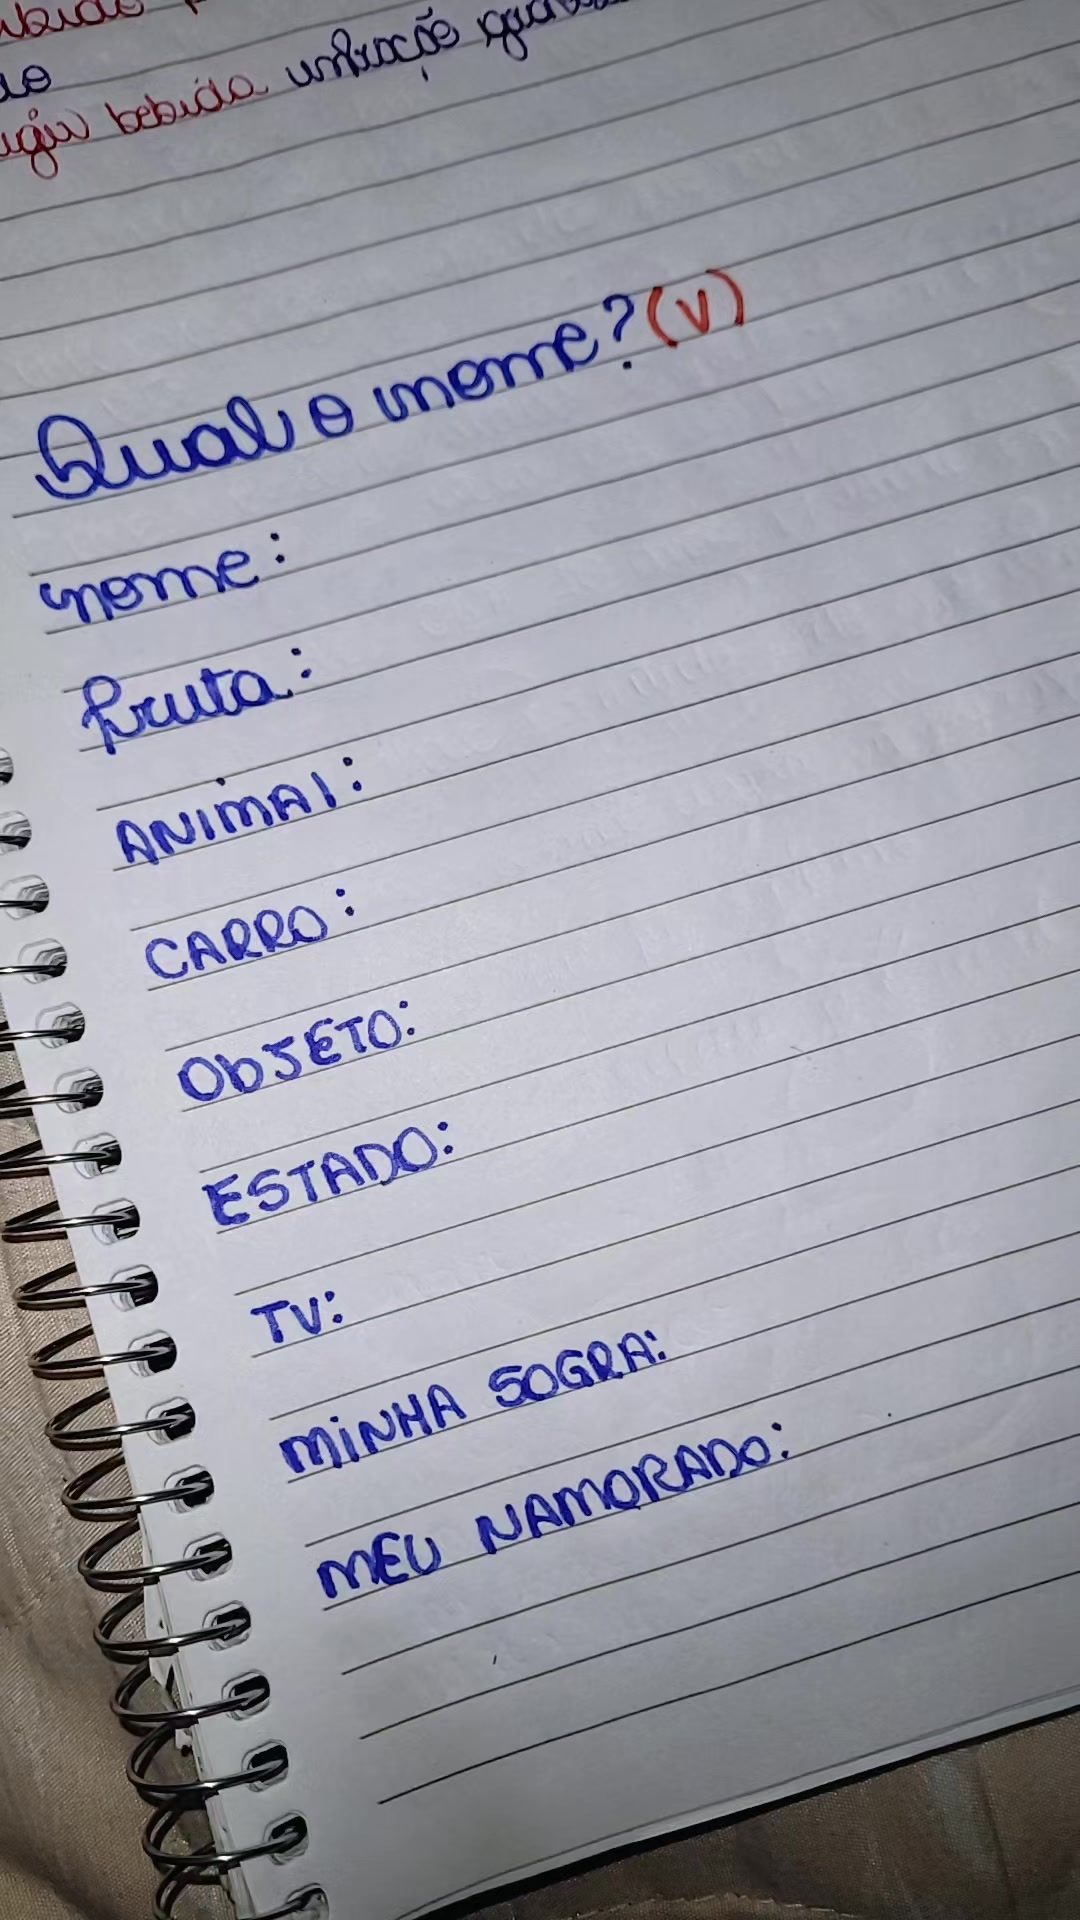 bebida infração
Qual o nome? (V)
nome:
fruta:
ANIMAl:
CARRO:
ObJETO:
ESTADO:
TV:
MINHA SOGRA:
MEU NAMORADO: